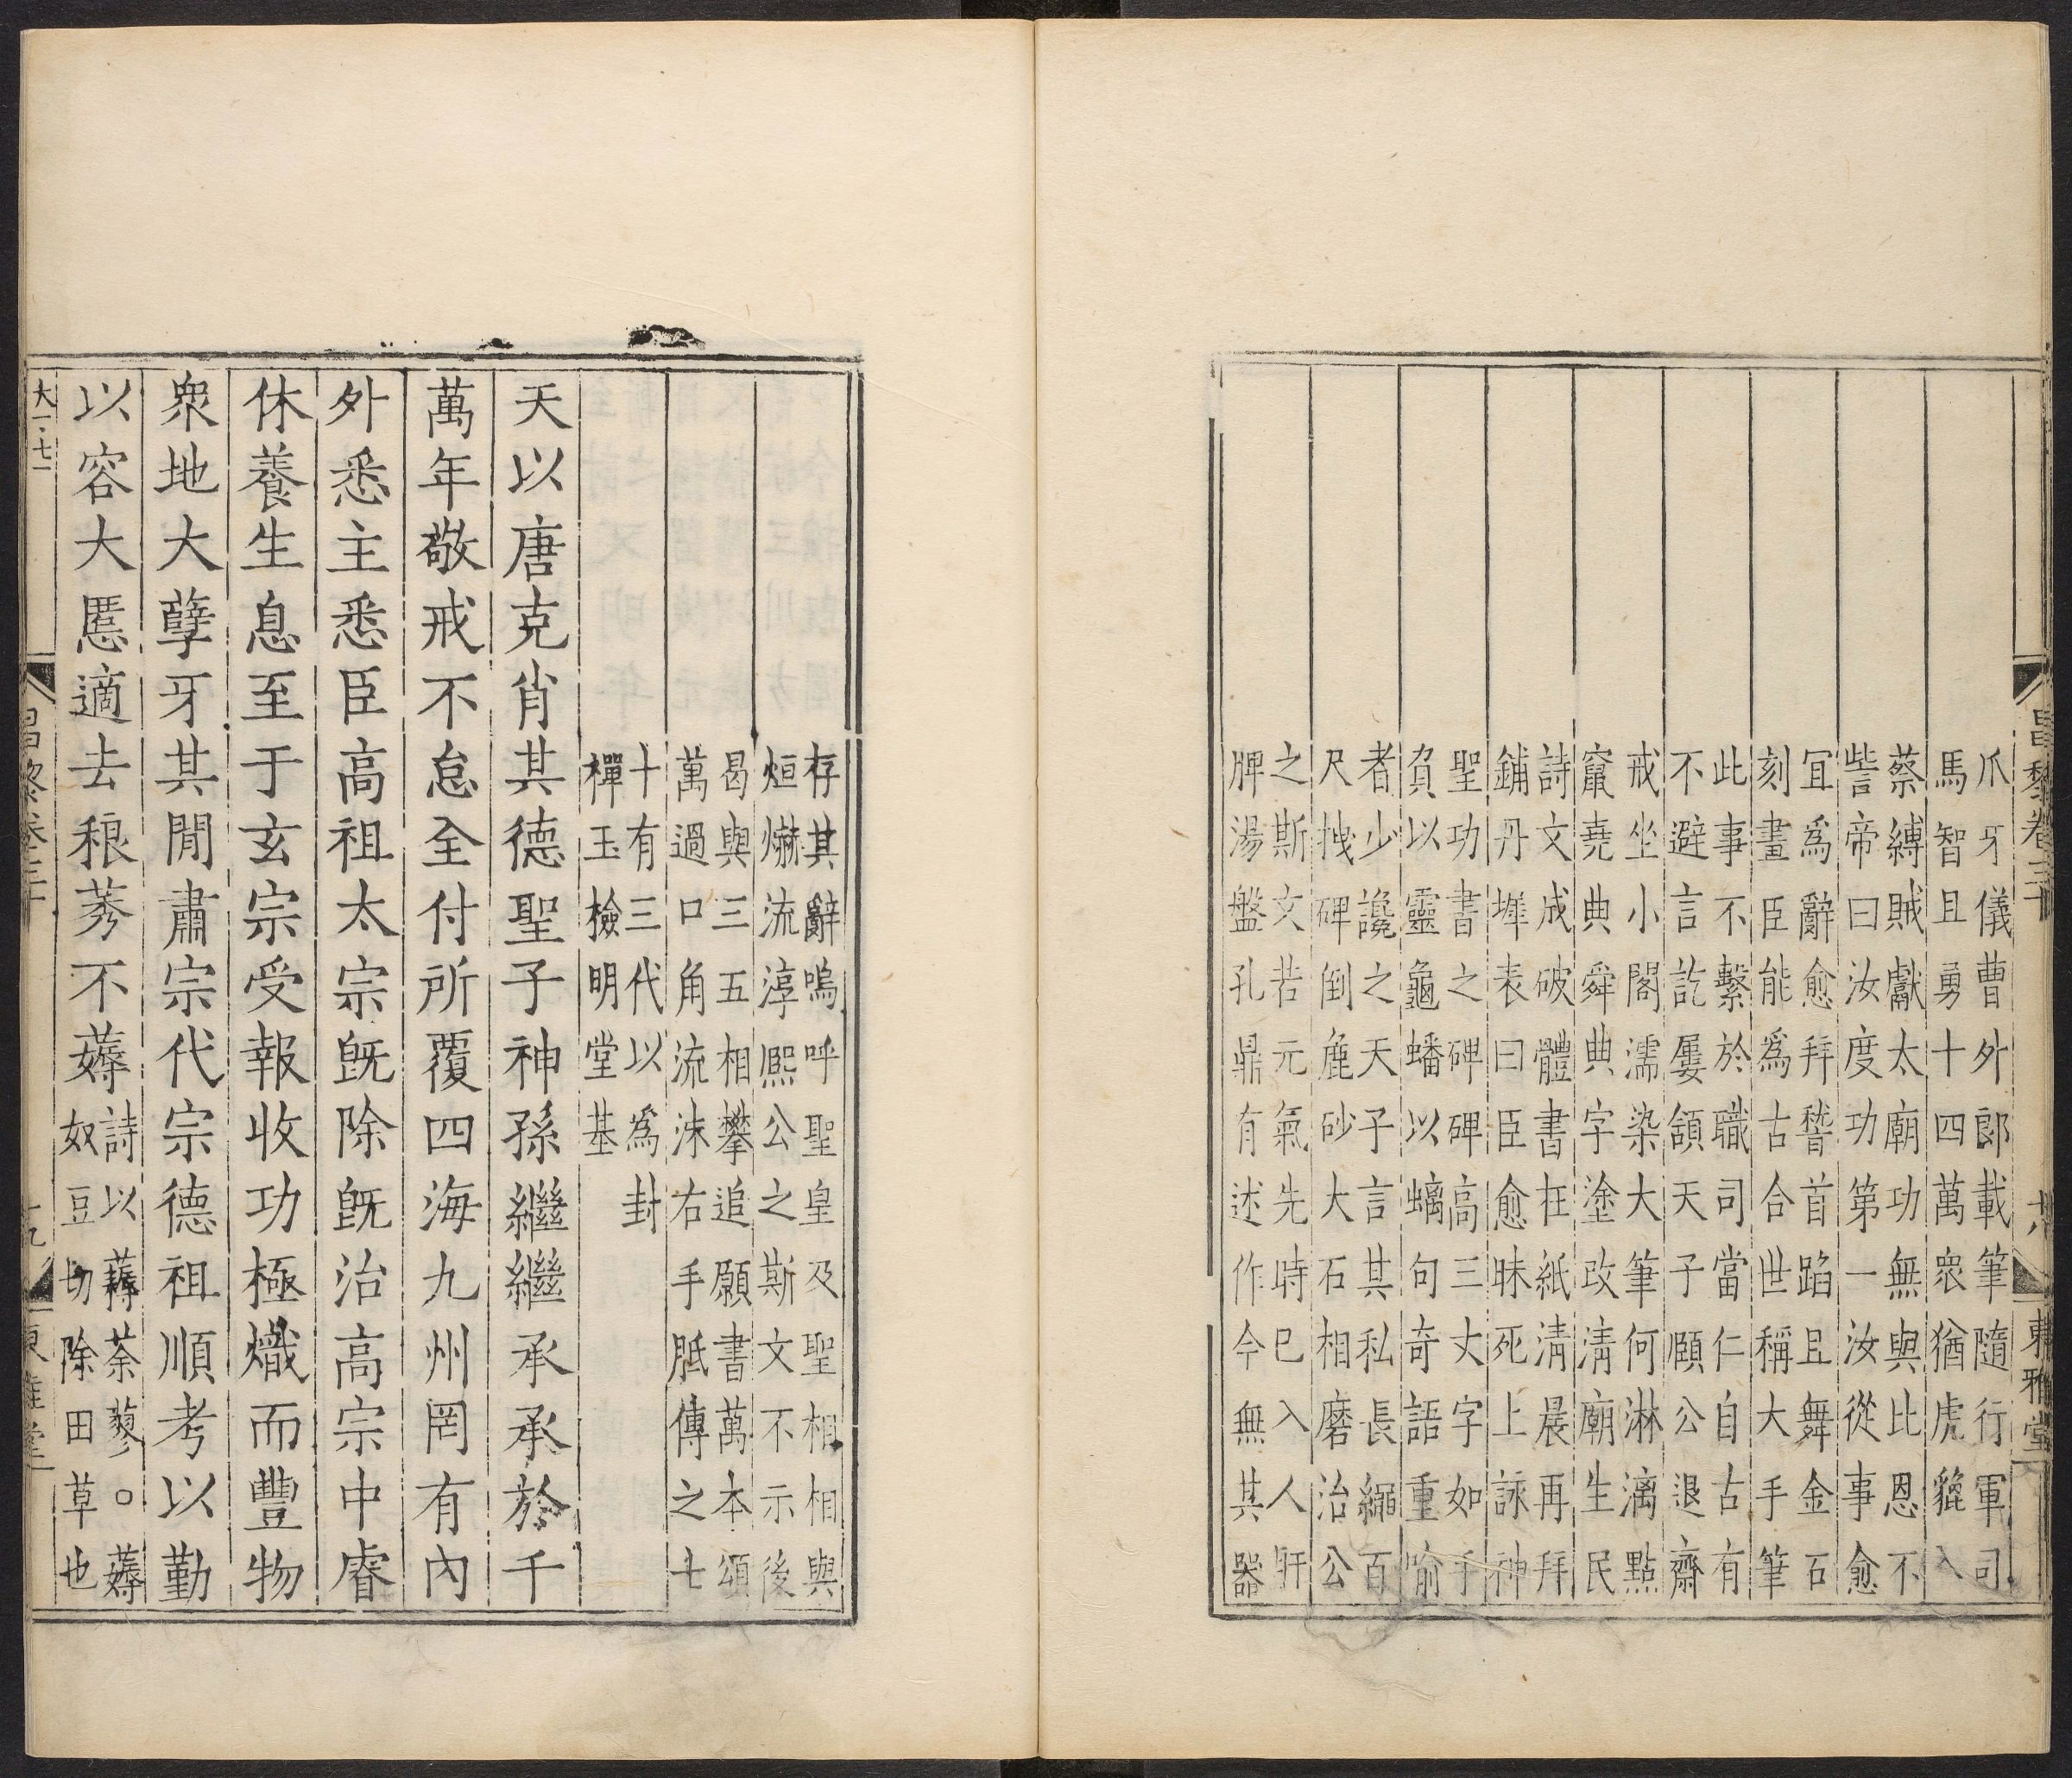 昌黎卷三十
十八
東雅堂
爪牙儀曹外郎載筆隨行軍司
馬智且勇十四萬衆猶虎貔入
蔡縛賊獻太廟功無與比恩不
訾帝曰汝度功第一汝從事愈
宜爲辭愈拜稽首蹈且舞金石
刻畫臣能爲古合世稱大手筆
此事不繫於職司當仁自古有
不避言訖屢頷天子頤公退齋
戒坐小閣濡染大筆何淋漓點
竄堯典舜典字塗改淸廟生民
詩文成破體書在紙淸晨再拜
鋪丹墀表曰臣愈昧死上詠神
聖功書之碑碑高三丈字如手
負以靈龜蟠以螭句奇語重喻
者少讒之天子言其私長繩百
尺拽碑倒麄砂大石相磨治公
之斯文若元氣先時已入人肝
脾湯盤孔鼎有述作今無其器
存其辭嗚呼聖皇及聖相相與
烜爀流淳熙公之斯文不示後
曷與三五相攀追願書萬本頌
萬過口角流沫右手胝傳之七
十有三代以爲封
禪玉檢明堂基
天以唐克肖其德聖子神孫繼繼承承於千
萬年敬戒不怠全付所覆四海九州罔有內
外悉主悉臣高祖太宗旣除旣治高宗中睿
休養生息至于玄宗受報收功極熾而豐物
衆地大孽牙其間肅宗代宗德祖順考以勤
以容大慝適去稂莠不薅
詩以薅荼蓼。薅
奴豆切除田草也
大一七一
昌黎卷三十
十九
東雅堂